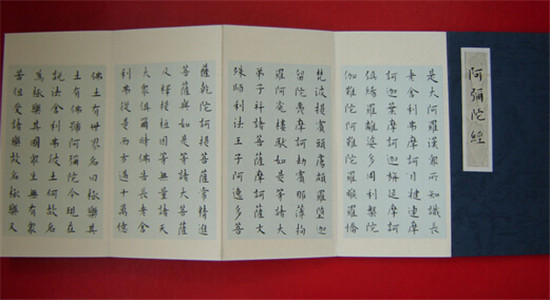 阿彌陀經
是大阿羅漢眾所知識長
老舍利弗摩訶目犍連摩
訶迦葉摩訶迦栴延摩訶
俱絺羅離婆多周利槃陀
伽難陀阿難陀羅睺羅憍
梵波提賓頭盧頗羅墮迦
留陀夷摩訶劫賓那薄拘
羅阿㝹樓馱如是等諸大
弟子并諸菩薩摩訶薩文
殊師利法王子阿逸多菩
薩乾陀訶提菩薩常精進
菩薩與如是等諸大菩薩
及釋提桓因等無量諸天
大眾俱爾時佛告長老舍
利弗從是西方過十萬億
佛土有世界名曰極樂其
土有佛號阿彌陀今現在
說法舍利弗彼土何故名
為極樂其國眾生無有眾
苦但受諸樂故名極樂又